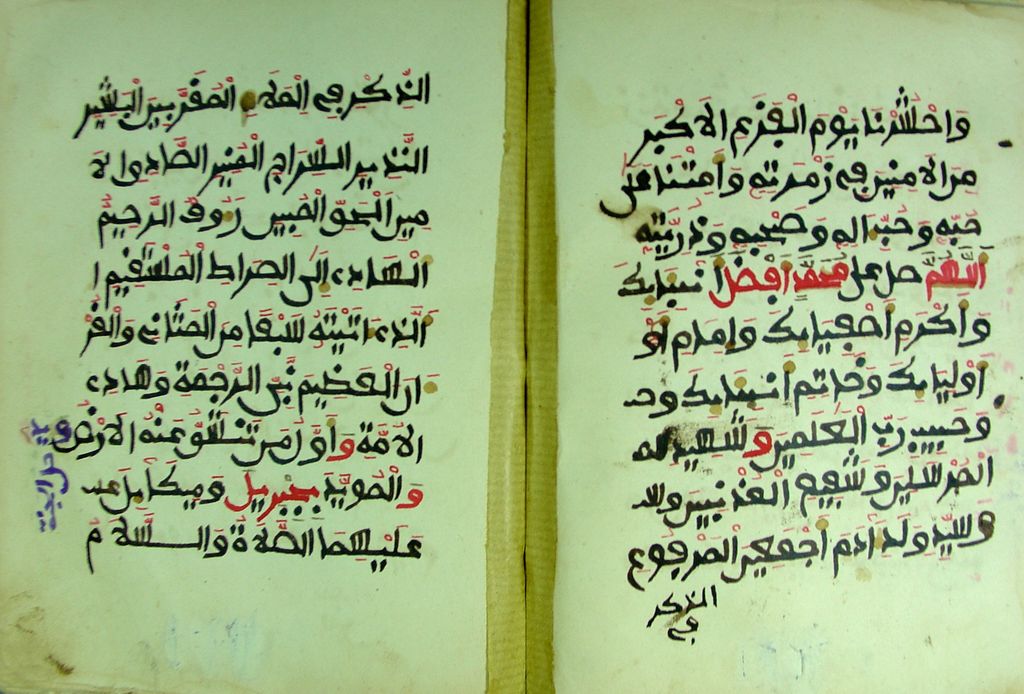 وَاحْشُرْنَا يَوْمَ الْفَزَعِ الاَكْبَرِ
مِنَ الاَمِنِينَ فِي زُمْرَتِهِ وَأَمِتْنَا عَلَى
حُبِّهِ وَحُبِّ ءَالِهِ وَصَحْبِهِ وَذُرِّيَّتِهِ
اَللَّهُمَّ صَلِّ عَلَى مُحَمَّدٍ اَفْضَلِ أَنْبِيَايِكَ
وَأَكْرَمِ أَصْفِيَايِكَ وَإِمَامِ أَوْ
أَوْلِيَايِكَ وَخَاتِمِ أَنْبِيَايِكَ وحـ
وَحَبِيبِ رَبِّ الْعَلَمِينَ وَشَهِيدِ
الْمُرْسَلِينَ وَشَفِيعِ الْمُذْنِبِينَ وسـ
وَسَيِّدِ وَلَدِ ءَادَمَ أَجْمَعِينَ الْمَرْفُوعِ
الذكر
في
الذِّكْرِ فِي الْمَلَاءِ الْمُقَرَّبِينَ الْبَشِيرِ
النَّذِيرِ السِّرَاجِ الْمُنِيرِ الصَّادِقِ الاَ
مِينِ الْحَقِّ الْمُبِينِ رَؤُوفِ الرَّحِيمِ
الْهَادِي إِلَى الصِّرَاطِ الْمُسْتَقِيمِ ا
اَلَّذِي ءَاتَيْتَهُ سَبْعًا مِنَ الْمَثَانِي وَالْقُرْ
ءَانَ الْعَظِيمَ نَبِيِّ الرَّحْمَةِ وَهَادِي
الاُمَّةِ وَأَوَّلِ مَنْ تَنْشَقُّ عَنْهُ الاَرْضُ
و يدخل الجنة
وَالْمُؤَيَّدِ بِجِبْرِيلَ وَمِيكَايِلَ عـ
عَلَيْهِمَا الصَّلَاةُ وَالسَّلَامُ